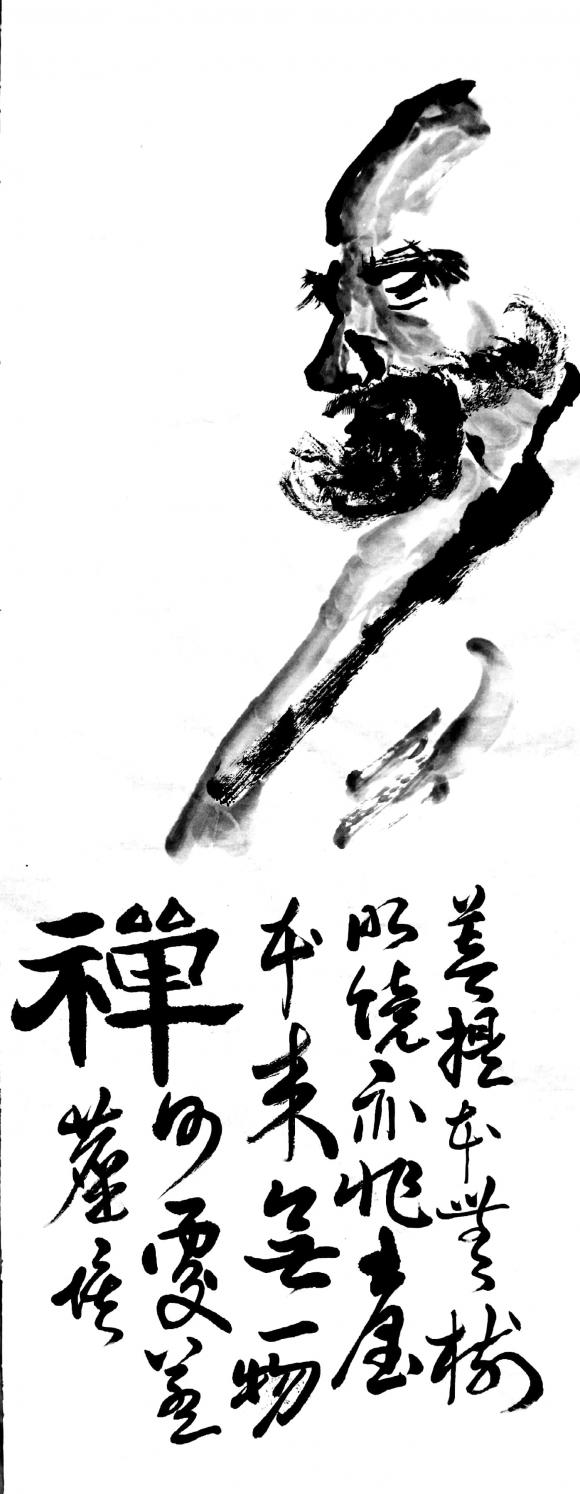 菩提本無樹
明鏡亦非臺
本来無一物
禪
何處惹
塵埃